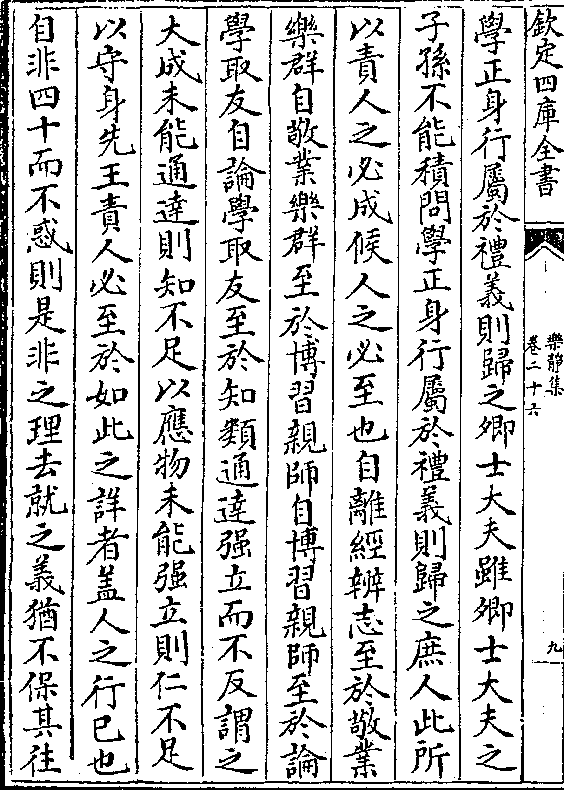 欽定四庫全書
樂靜集
卷二十六
九
學正身行屬於禮義則歸之卿士大夫雖卿士大夫之
子孫不能積問學正身行屬於禮義則歸之庶人此所
以責人之必成候人之必至也自離經辨志至於敬業
樂群自敬業樂群至於博習親師自博習親師至於論
學取友自論學取友至於知類通達强立而不反謂之
大成未能通達則知不足以應物未能强立則仁不足
以守身先王責人必至於如此之詳者盖人之行已也
自非四十而不惑則是非之理去就之義猶不保其往